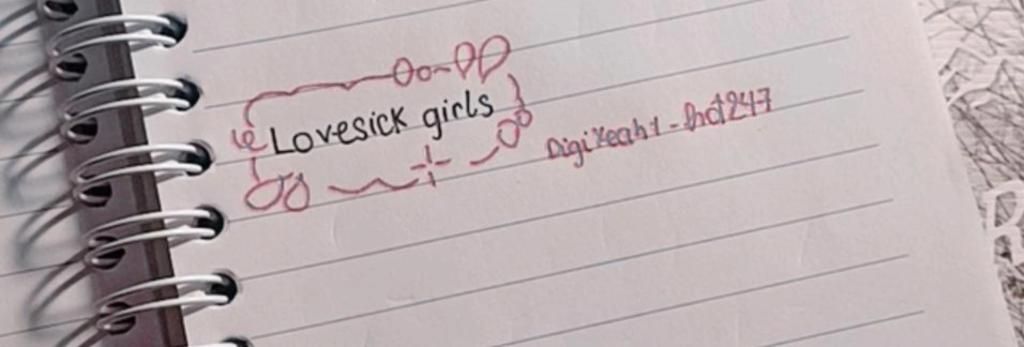 Lovesick girls
DigiYeah1 - Ind247